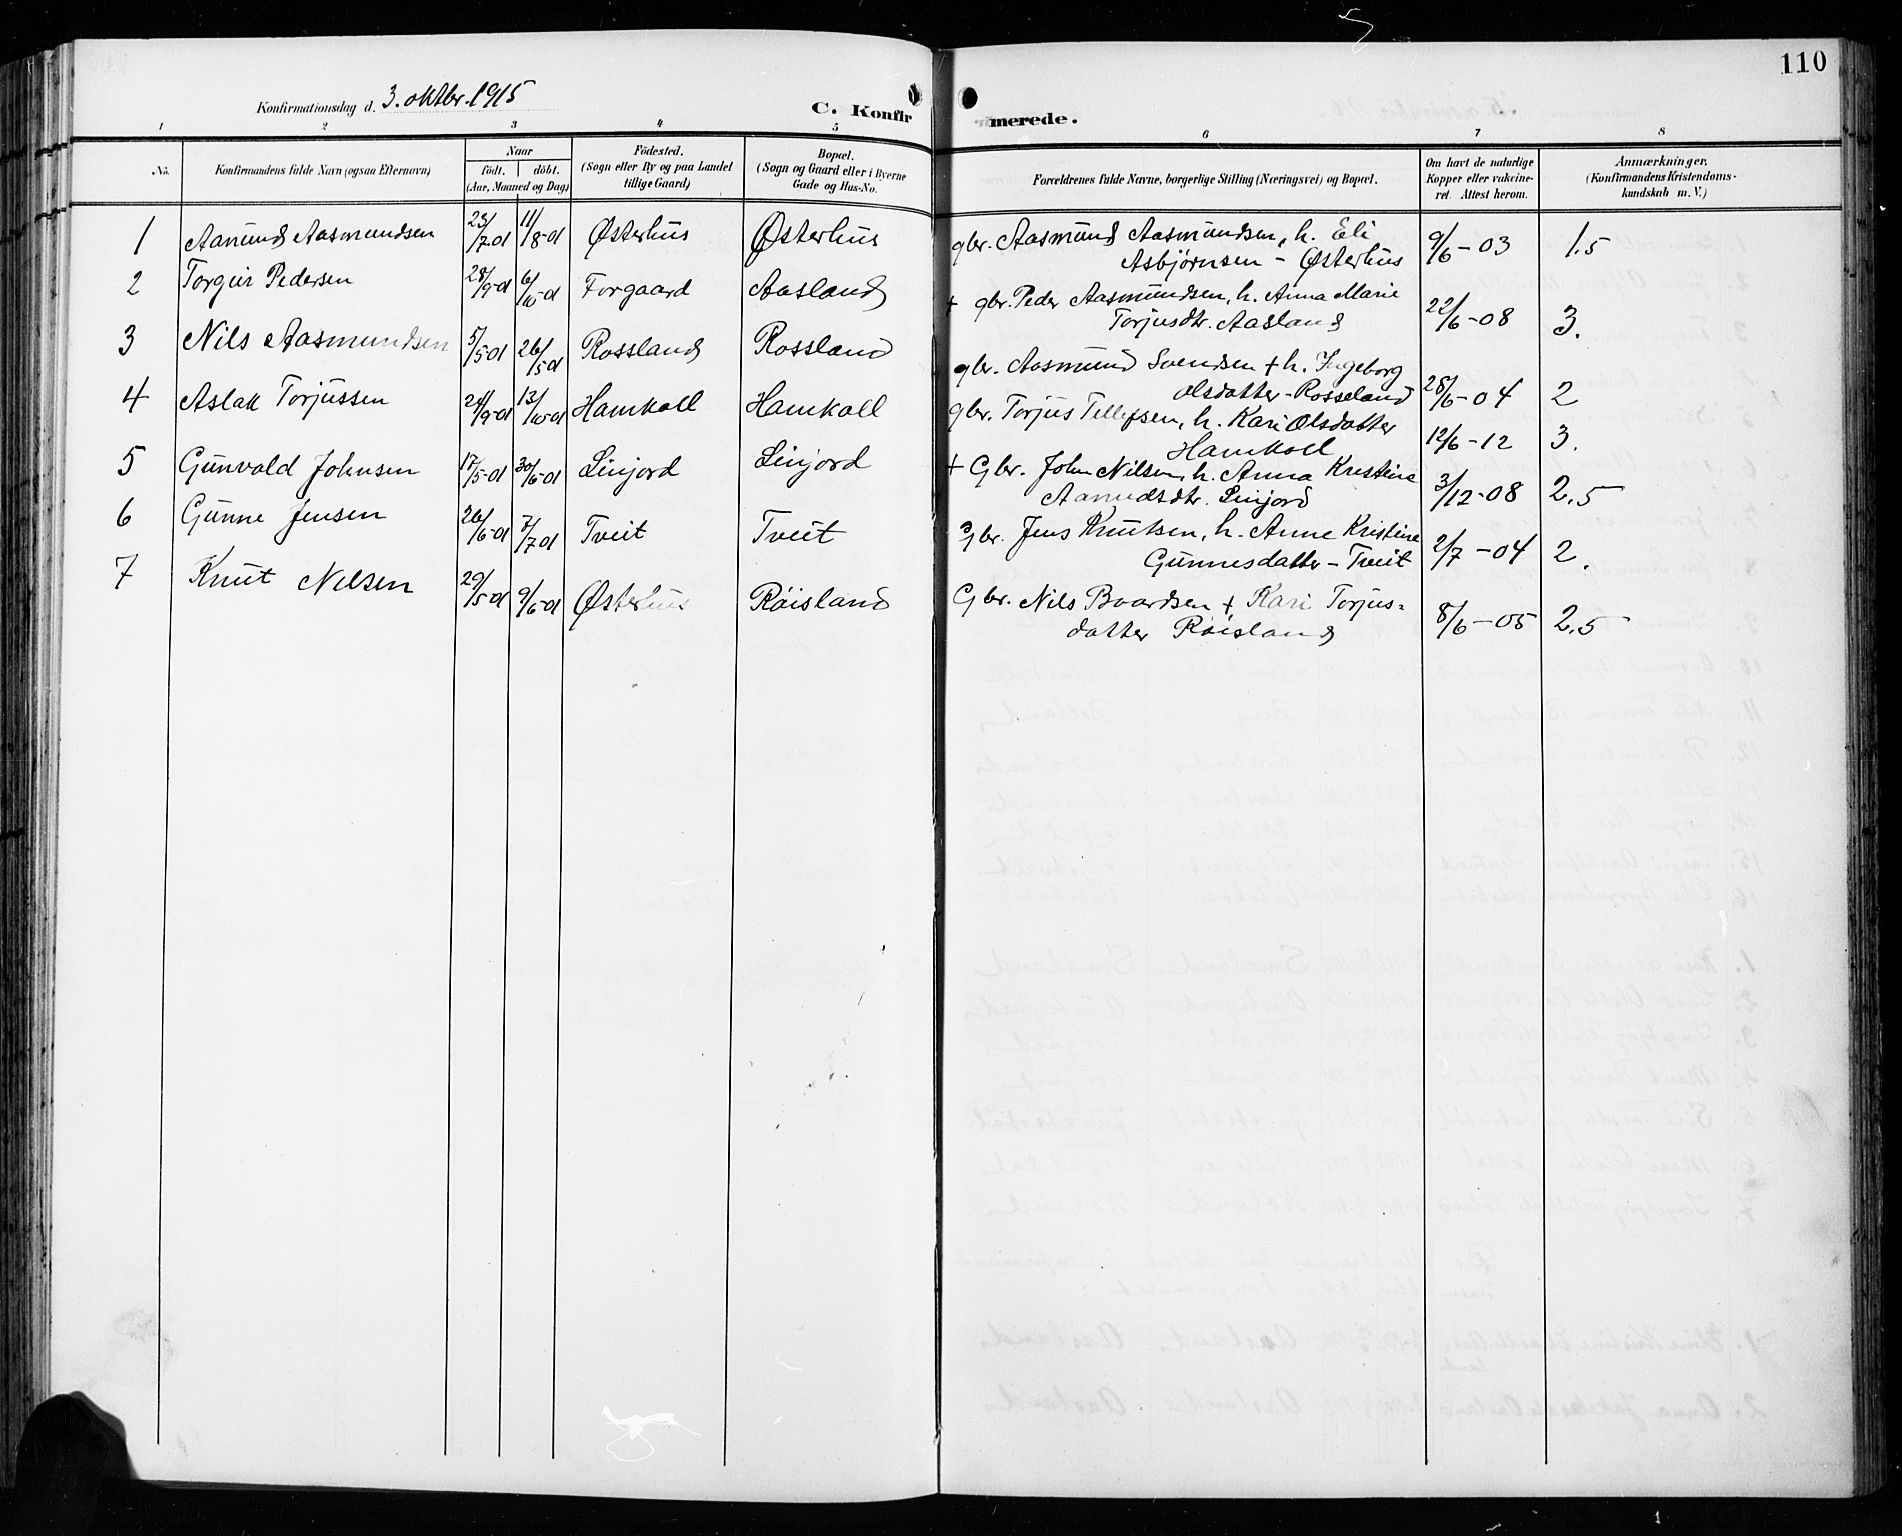 110
Konfirmationsdag d. 3. oktbr. 1915
C. Konfirmerede.
1 2 3 4 5 6 7 8
No.
Konfirmandens fulde Navn (ogsaa Efternavn)
Naar
födt. döbt.
(Aar, Maaned og Dag)
Födested.
(Sogn eller By og paa Landet
tillige Gaard)
Bopæl.
(Sogn og Gaard eller i Byerne
Gade og Hus-No.
Forældrenes fulde Navne, borgerlige Stilling (Næringsvei) og Bopæl.
Om havt de naturlige
Kopper eller vakcine-
ret. Attest herom.
Anmærkninger.
(Konfirmandens Kristendoms-
kundskab m. V.)
1 Aanund Aasmundsen 23/7-01 11/8-01 Østerhus Østerhus gbr. Aasmund Aasmundsen, h. Eli 9/6-03 1.5
Asbjørnsen - Østerhus
2 Torgus Pedersen 28/9-01 6/10-01 Forgaard Aasland + gbr. Peder Aasmundsen, h. Anna Marie 22/6-08 3.
Torjusdtr. Aasland
3 Nils Aasmundsen 5/5-01 26/5-01 Rossland Rossland gbr. Aasmund Svendsen + h. Ingeborg 28/6-04 2
Olsdatter - Rosseland
4 Aslak Torjussen 24/9-01 13/10-01 Hamkoll Hamkoll gbr. Torjus Tellefsen, h. Kari Olsdatter 12/6-12 3.
Hamkoll
5 Gunvald Johnsen 17/5-01 30/6-01 Linjord Linjord + Gbr. John Nilsen, h. Anna Kristine 3/12-08 2.5
Aanundsdtr. Linjord
6 Gunne Jensen 26/6-01 7/7-01 Tveit Tveit Gbr. Jens Knutsen, h. Anne Kristine 2/7-04 2.
Gunnesdatter - Tveit
7 Knut Nilsen 29/5-01 9/6-01 Østerhus Røisland Gbr. Nils Baardsen + Kari Torjus- 8/6-05 2.5
datter Røisland